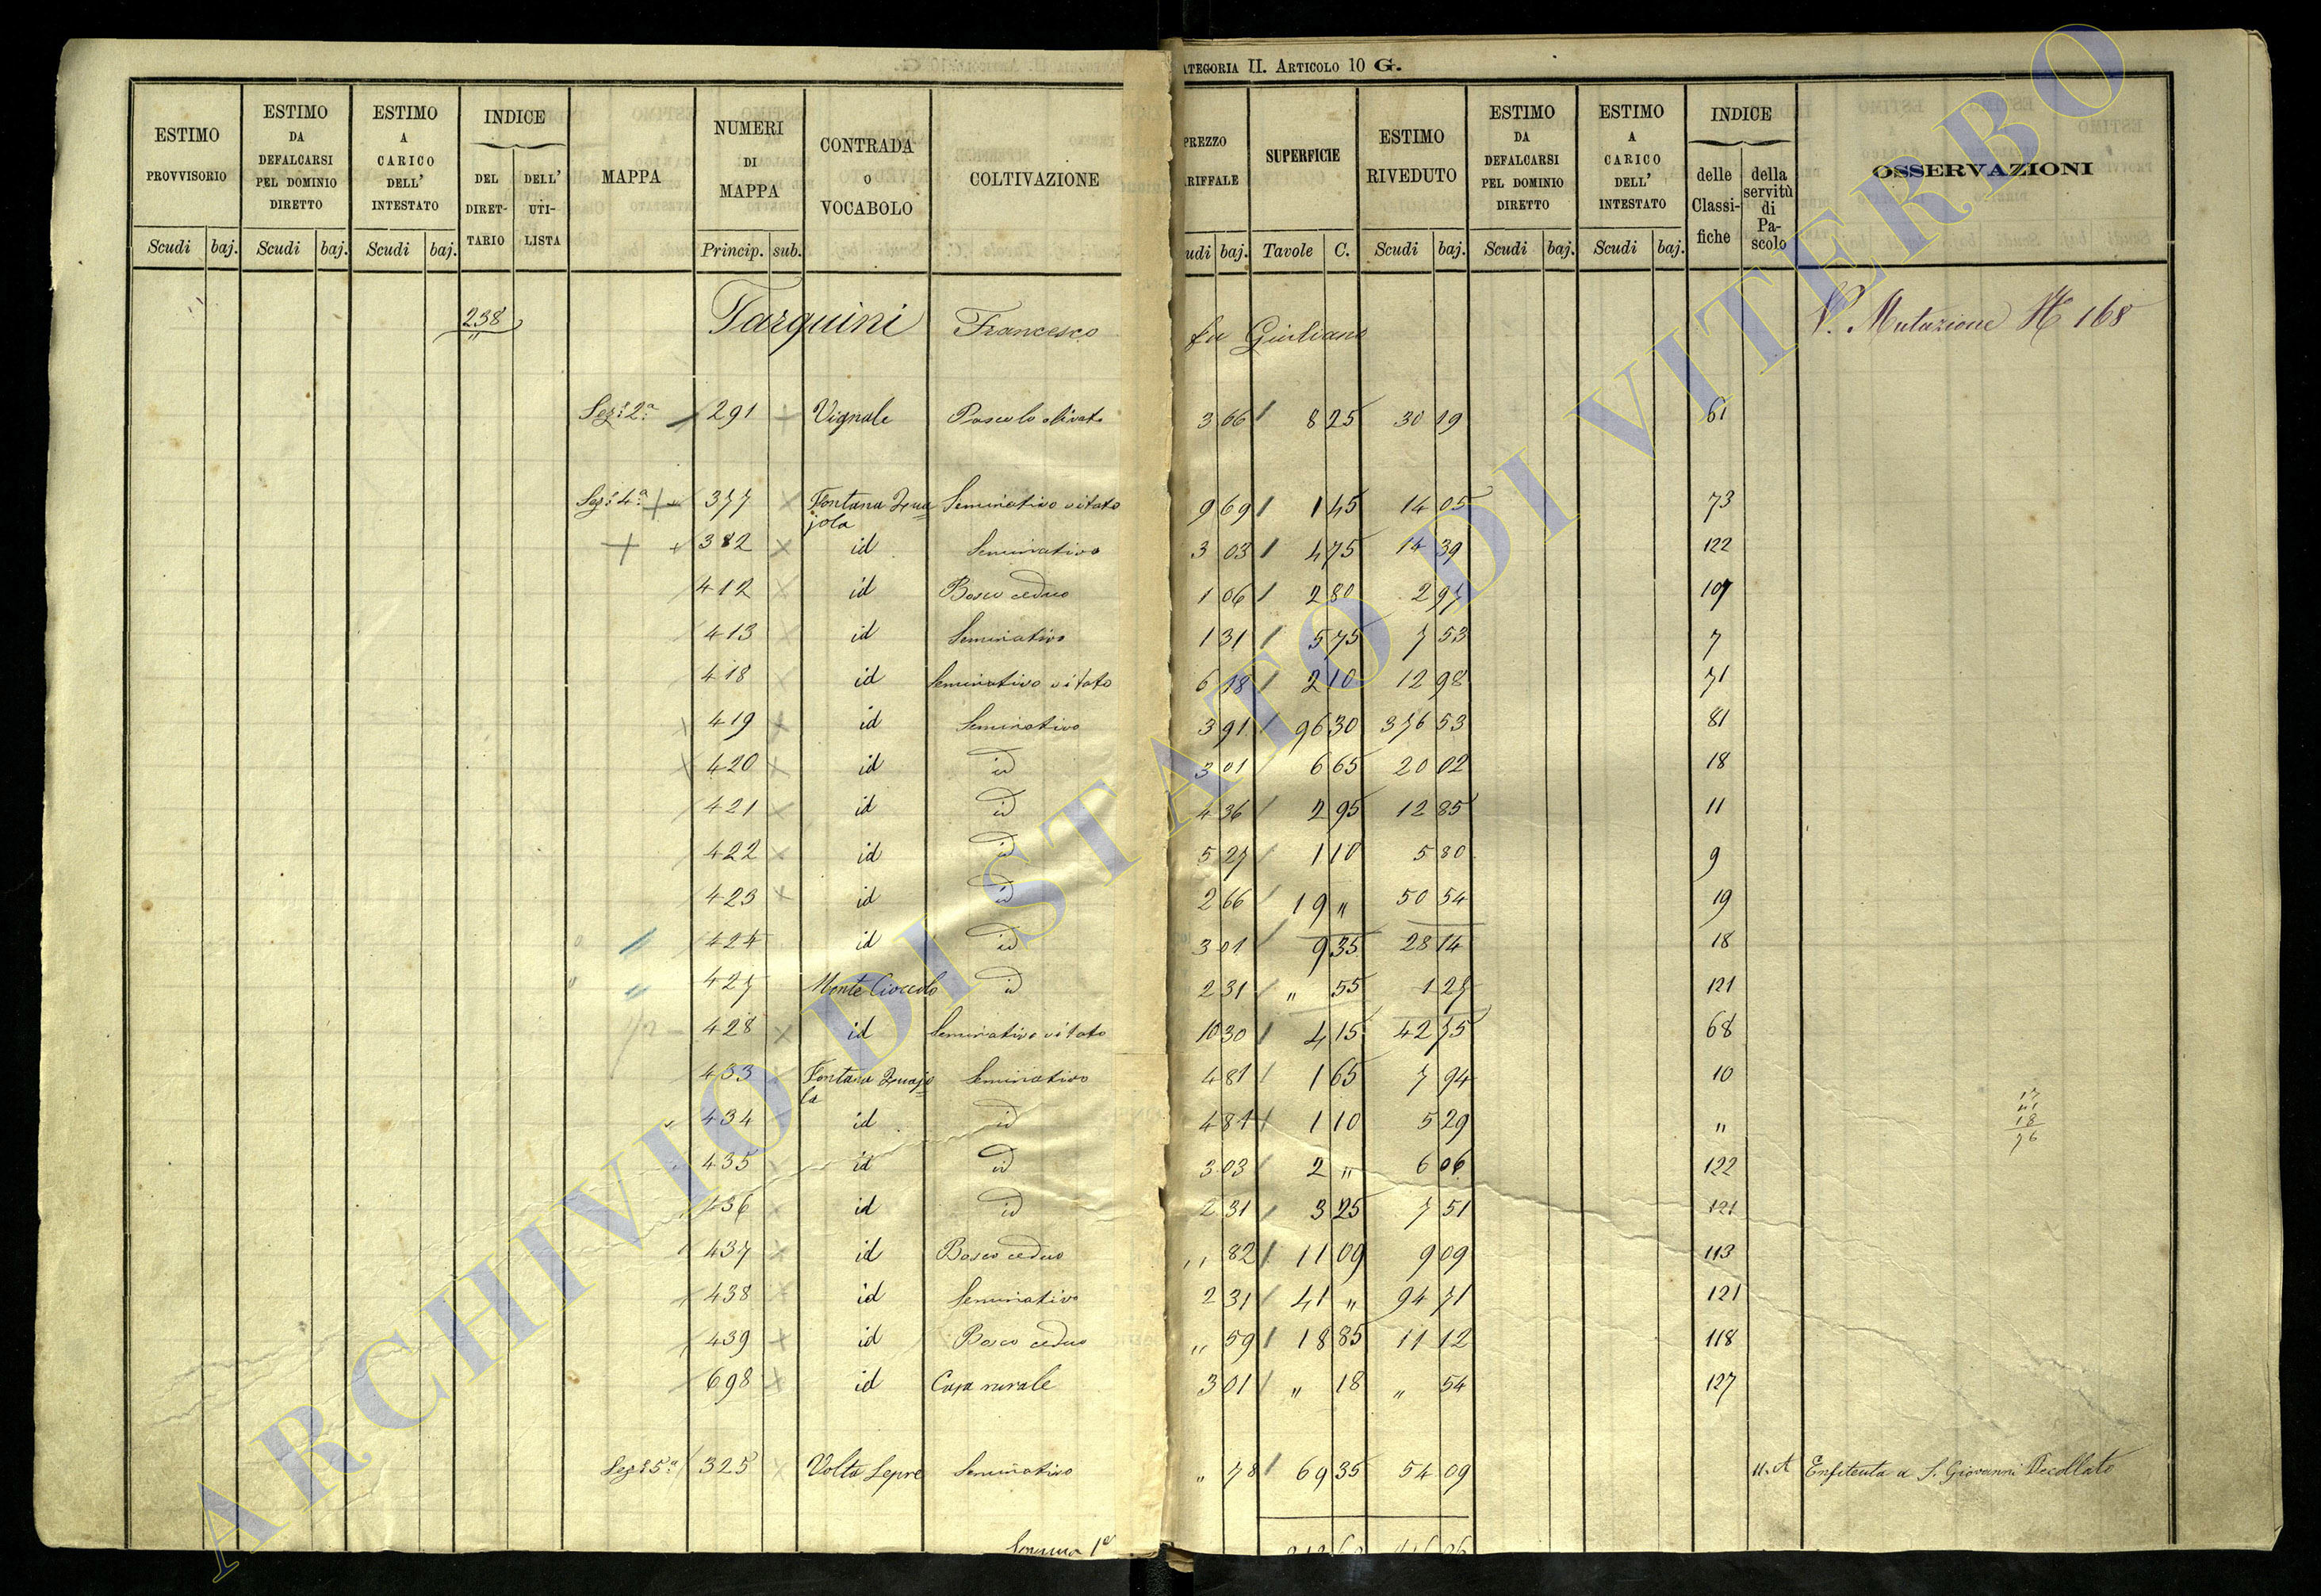 ATEGORIA II. ARTICOLO 10 G.
ESTIMO PROVVISORIO
Scudi baj.
ESTIMO DA DEFALCARSI PEL DOMINIO DIRETTO
Scudi baj.
ESTIMO A CARICO DELL' INTESTATO
Scudi baj.
INDICE
DEL DIRET-TARIO
DELL' UTI-LISTA
MAPPA
NUMERI DI MAPPA
Princip. sub.
CONTRADA o VOCABOLO
COLTIVAZIONE
PREZZO
RIFFALE
udi baj.
SUPERFICIE
Tavole C.
ESTIMO RIVEDUTO
Scudi baj.
ESTIMO DA DEFALCARSI PEL DOMINIO DIRETTO
Scudi baj.
ESTIMO A CARICO DELL' INTESTATO
Scudi baj.
INDICE
delle Classi-fiche
della servitù di Pa-scolo
OSSERVAZIONI
238 Tarquini Francesco fu Giuliano V. Mutazione N 168
Sez: 2a 291 Vignale Pascolo olivato 3 06 8 25 30 19 61
Sez: 4a 377 Fontana jola Seminativo vitato 9 69 1 45 14 05 73
382 id Seminativo 3 03 4 75 14 39 122
412 id Bosco ceduo 1 06 2 80 2 97 107
413 id Seminativo 1 31 5 75 7 53 7
418 id Seminativo vitato 6 18 2 10 12 98 71
419 id Seminativo 3 91 96 30 376 53 81
420 id id 3 01 6 65 20 02 18
421 id id 4 36 2 95 12 85 11
422 id id 5 27 1 10 5 80 9
423 id id 2 66 19 " 50 54 19
424 id id 3 01 9 35 28 14 18
427 Monte Cioccolo id 2 31 " 55 1 27 121
428 id Seminativo vitato 10 30 4 15 42 75 68
433 Fontana la Seminativo 4 81 1 65 7 94 10
434 id id 4 81 1 10 5 29 "
435 id id 3 03 2 " 6 06 122
436 id id 2 31 3 25 7 51 121
437 id Bosco ceduo " 82 11 09 9 09 113
438 id Seminativo 2 31 41 " 94 71 121
439 id Bosco ceduo " 59 18 85 11 12 118
698 id Casa rurale 3 01 " 18 " 54 127
Sez: 5a 325 Volta Lepre Seminativo " 78 69 35 54 09 Enfiteuta a S. Giovanni Decollato
Somma 1a
ARCHIVIO DI STATO DI VITERBO